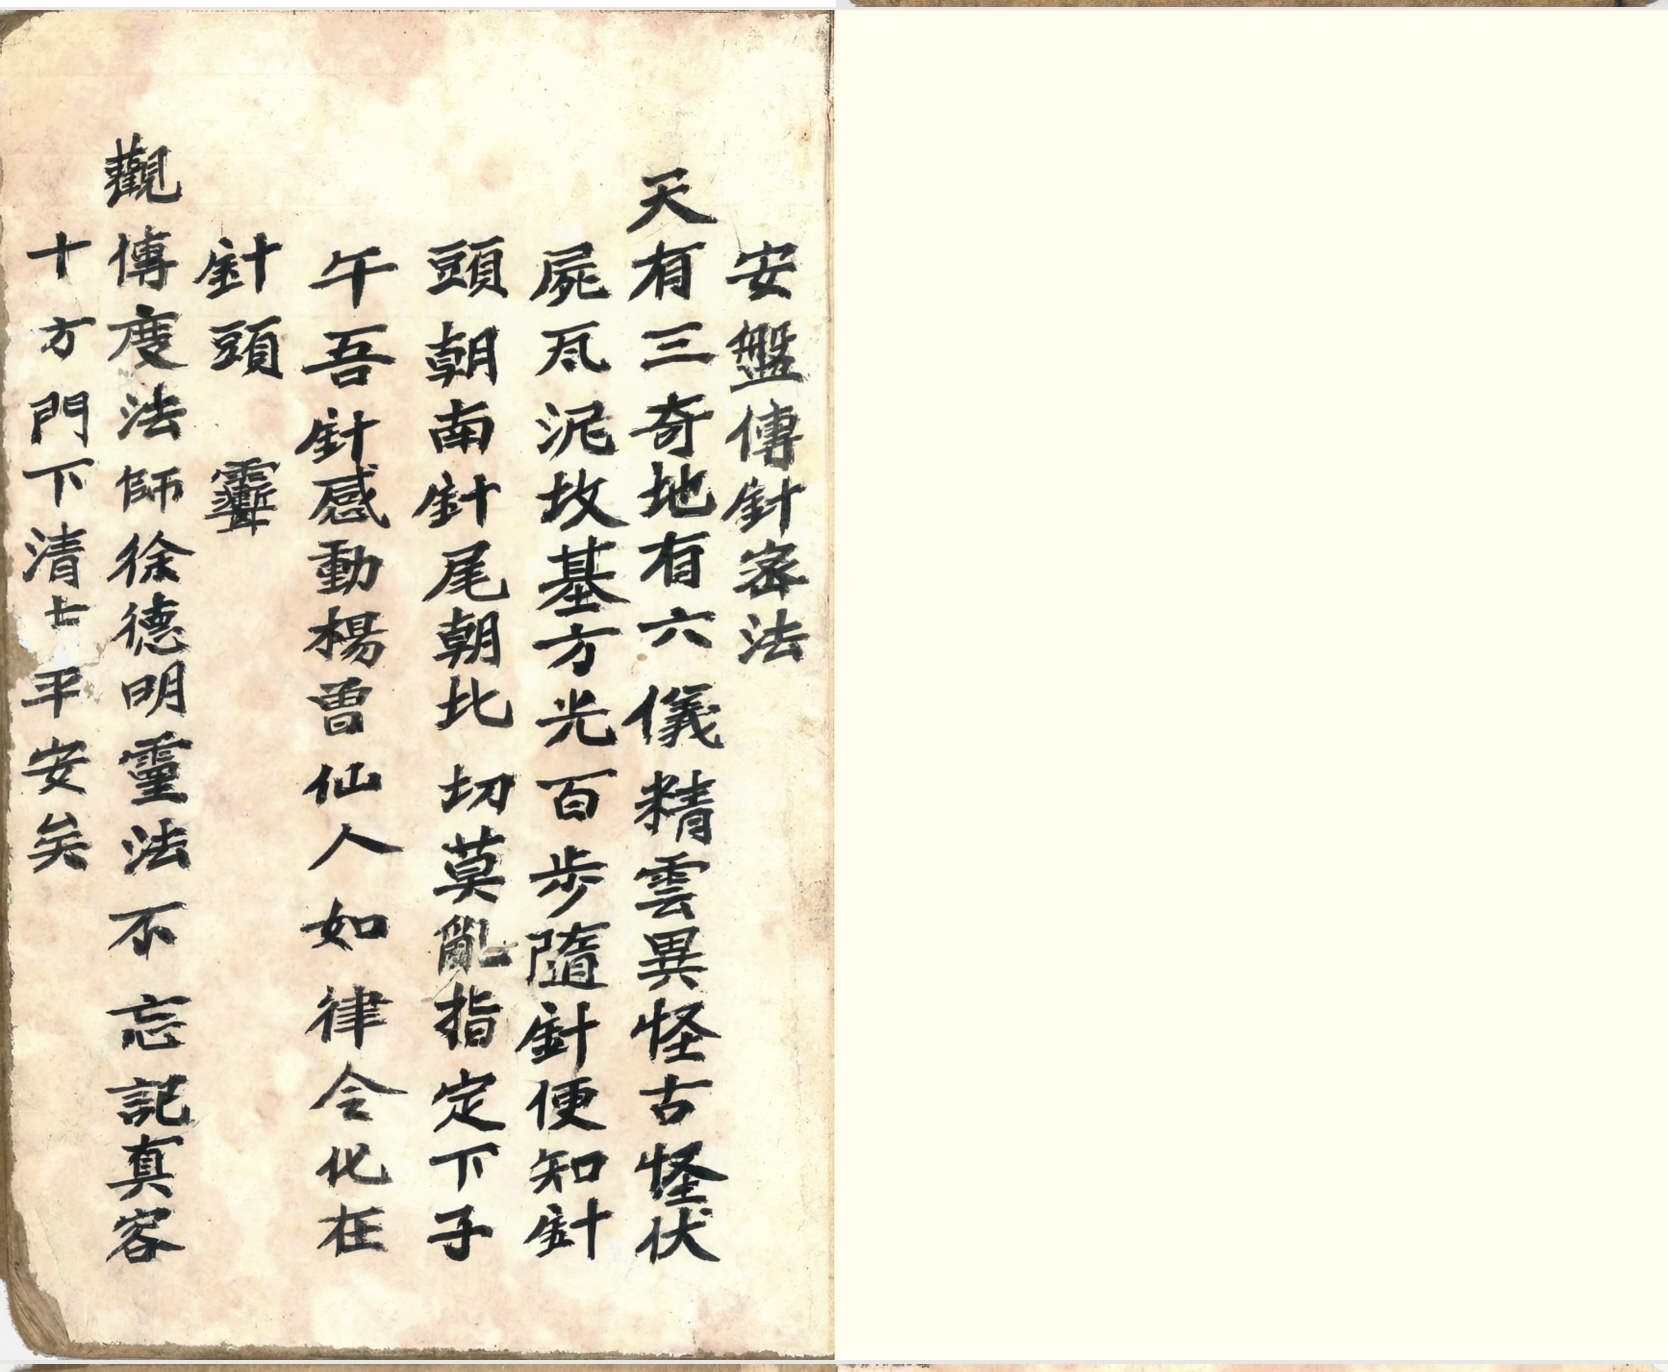 安盤傳針密法
天有三奇地有六儀精雲異怪古怪伏
屍瓦泥坟基方光百步隨針便知針
頭朝南針尾朝比切莫亂指定下子
午吾針感動楊曾仙人如律令化在
針頭
觀傳度法師徐德明靈法不忘記真客
十方門下清七平安矣